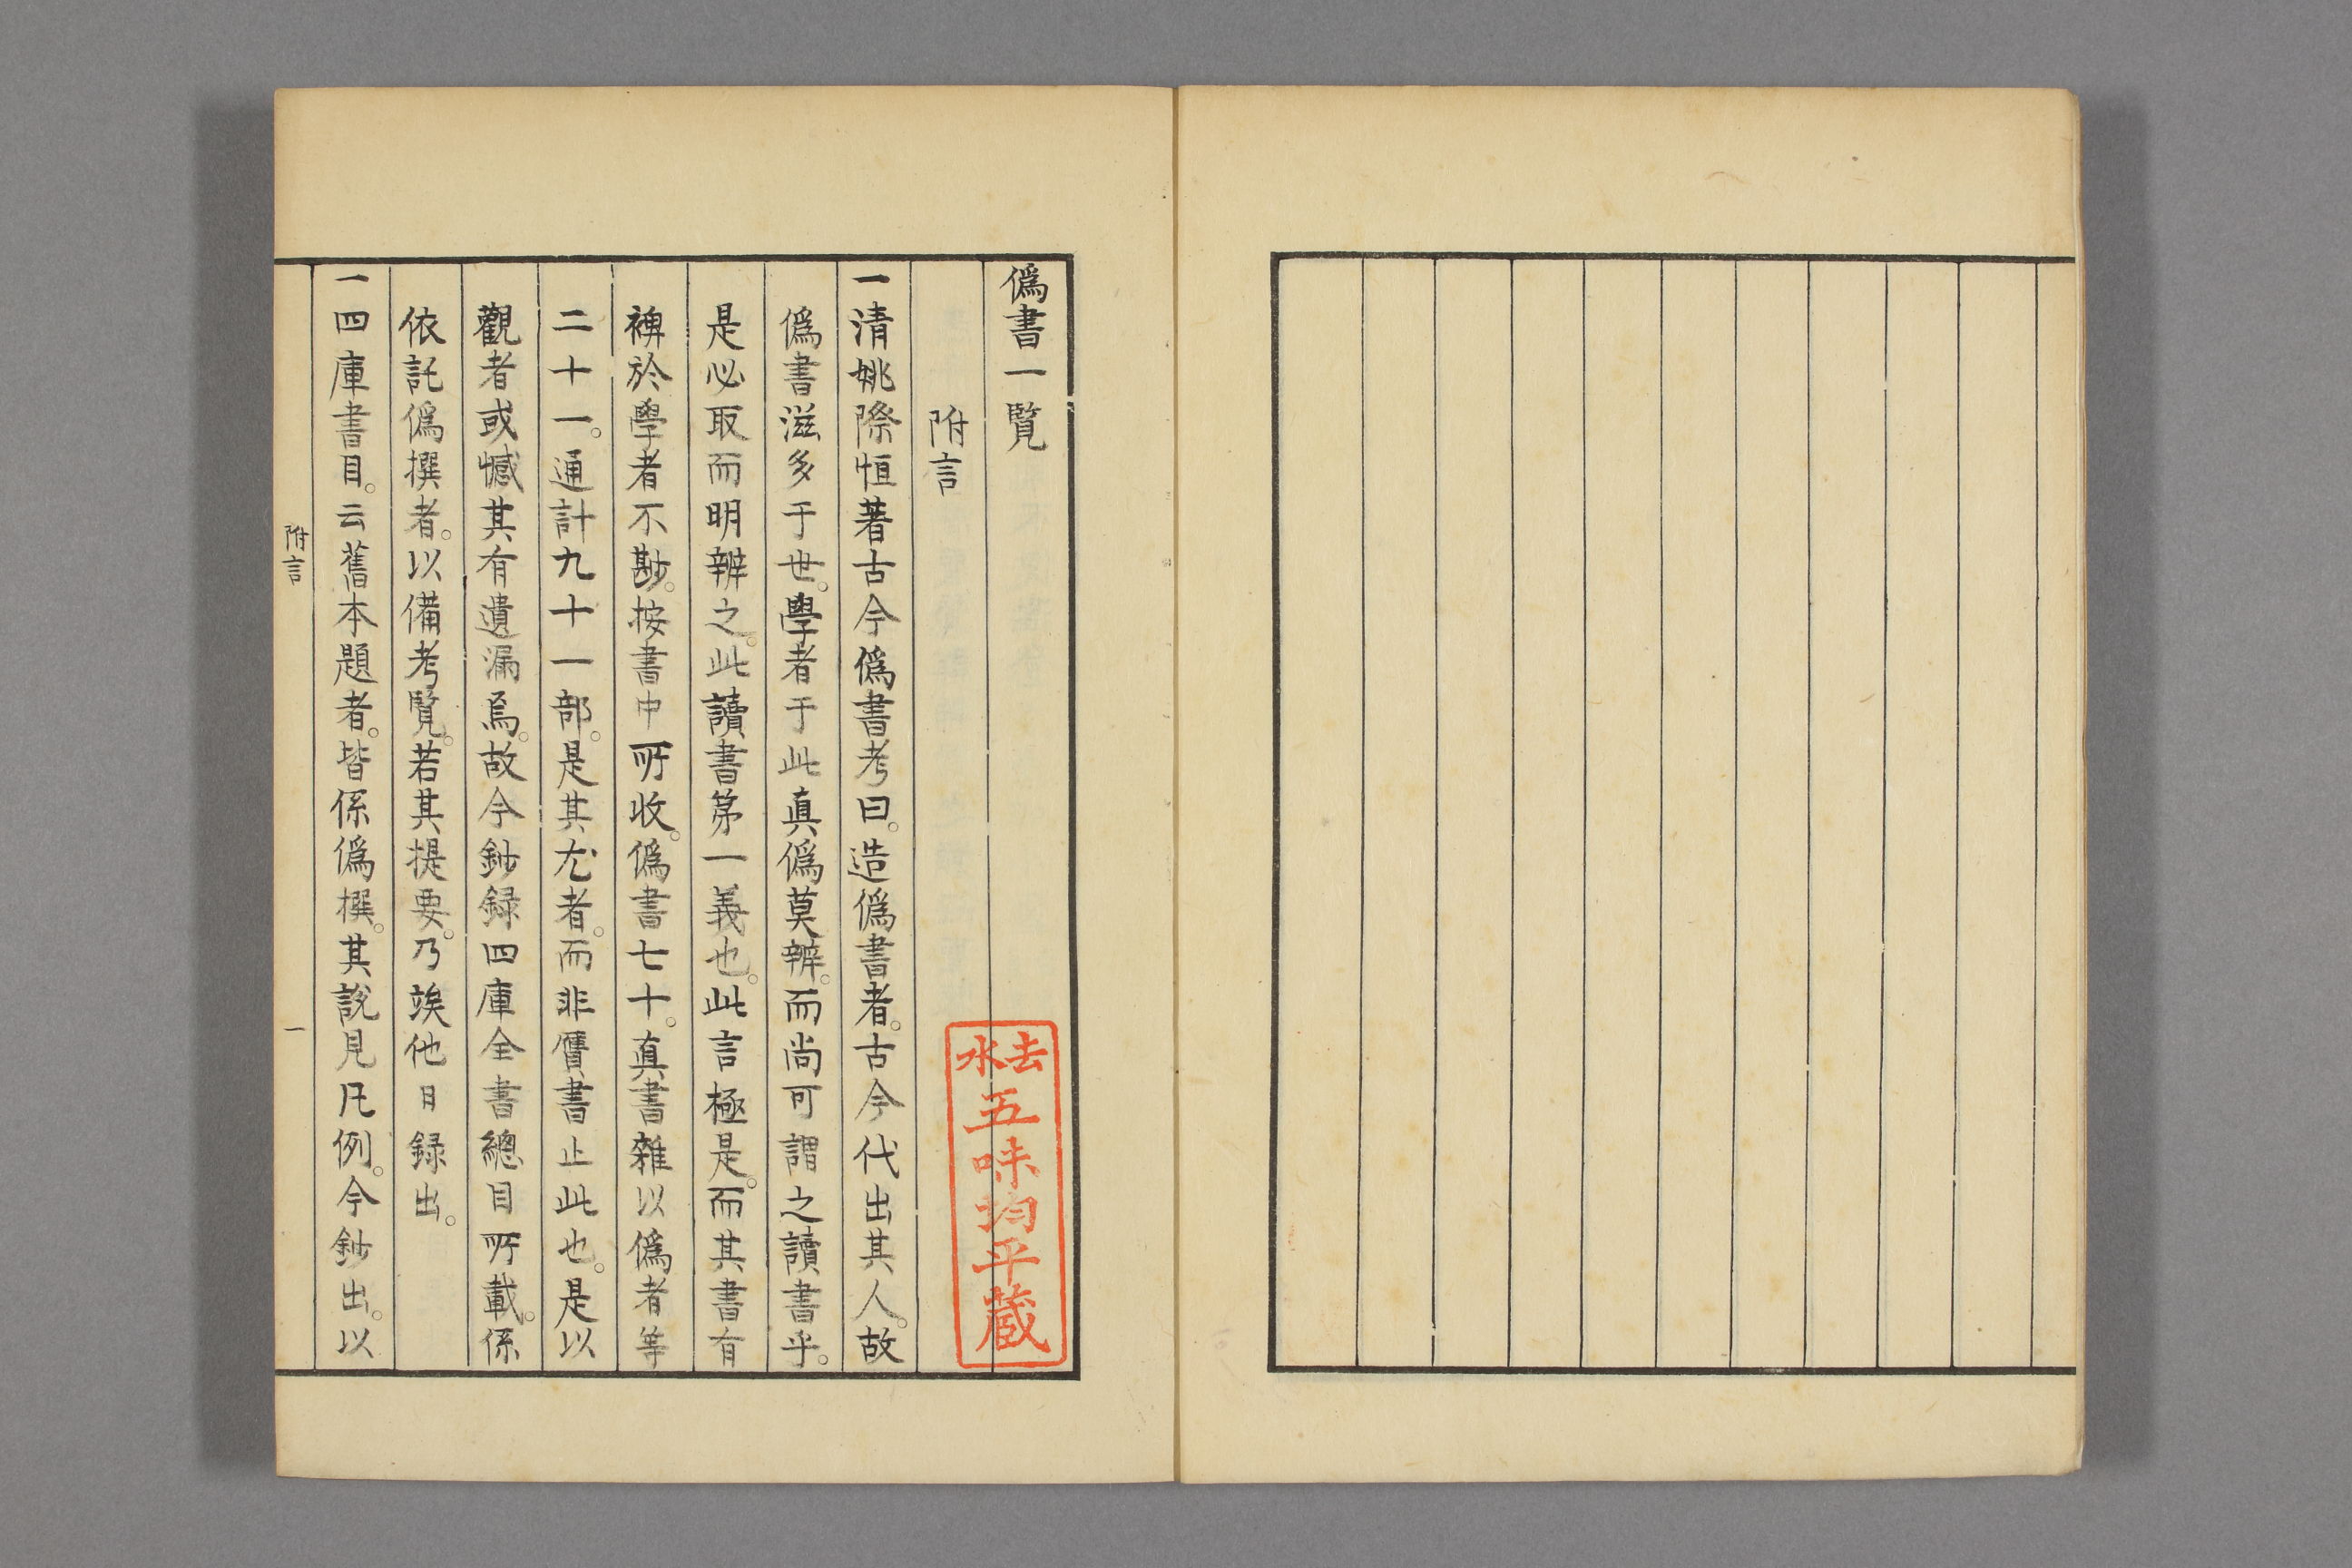 偽書一覧
附言
一清姚際恒著古今偽書考曰。造偽書者。古今代出其人。故
偽書滋多于世。學者于此真偽莫辨。而尚可謂之讀書乎。
是必取而明辨之。此讀書第一義也。此言極是。而其書有
裨於學者不尠。按書中所收。偽書七十。真書雜以偽者等
二十一。通計九十一部。是其尤者。而非贋書止此也。是以
觀者或憾其有遺漏焉。故今鈔録四庫全書總目所載。係
依託偽撰者。以備考覧。若其提要。乃竢他日録出。
一四庫書目。云舊本題者。皆係偽撰。其說見凡例。今鈔出。以
附言
一
去水
五味均平蔵